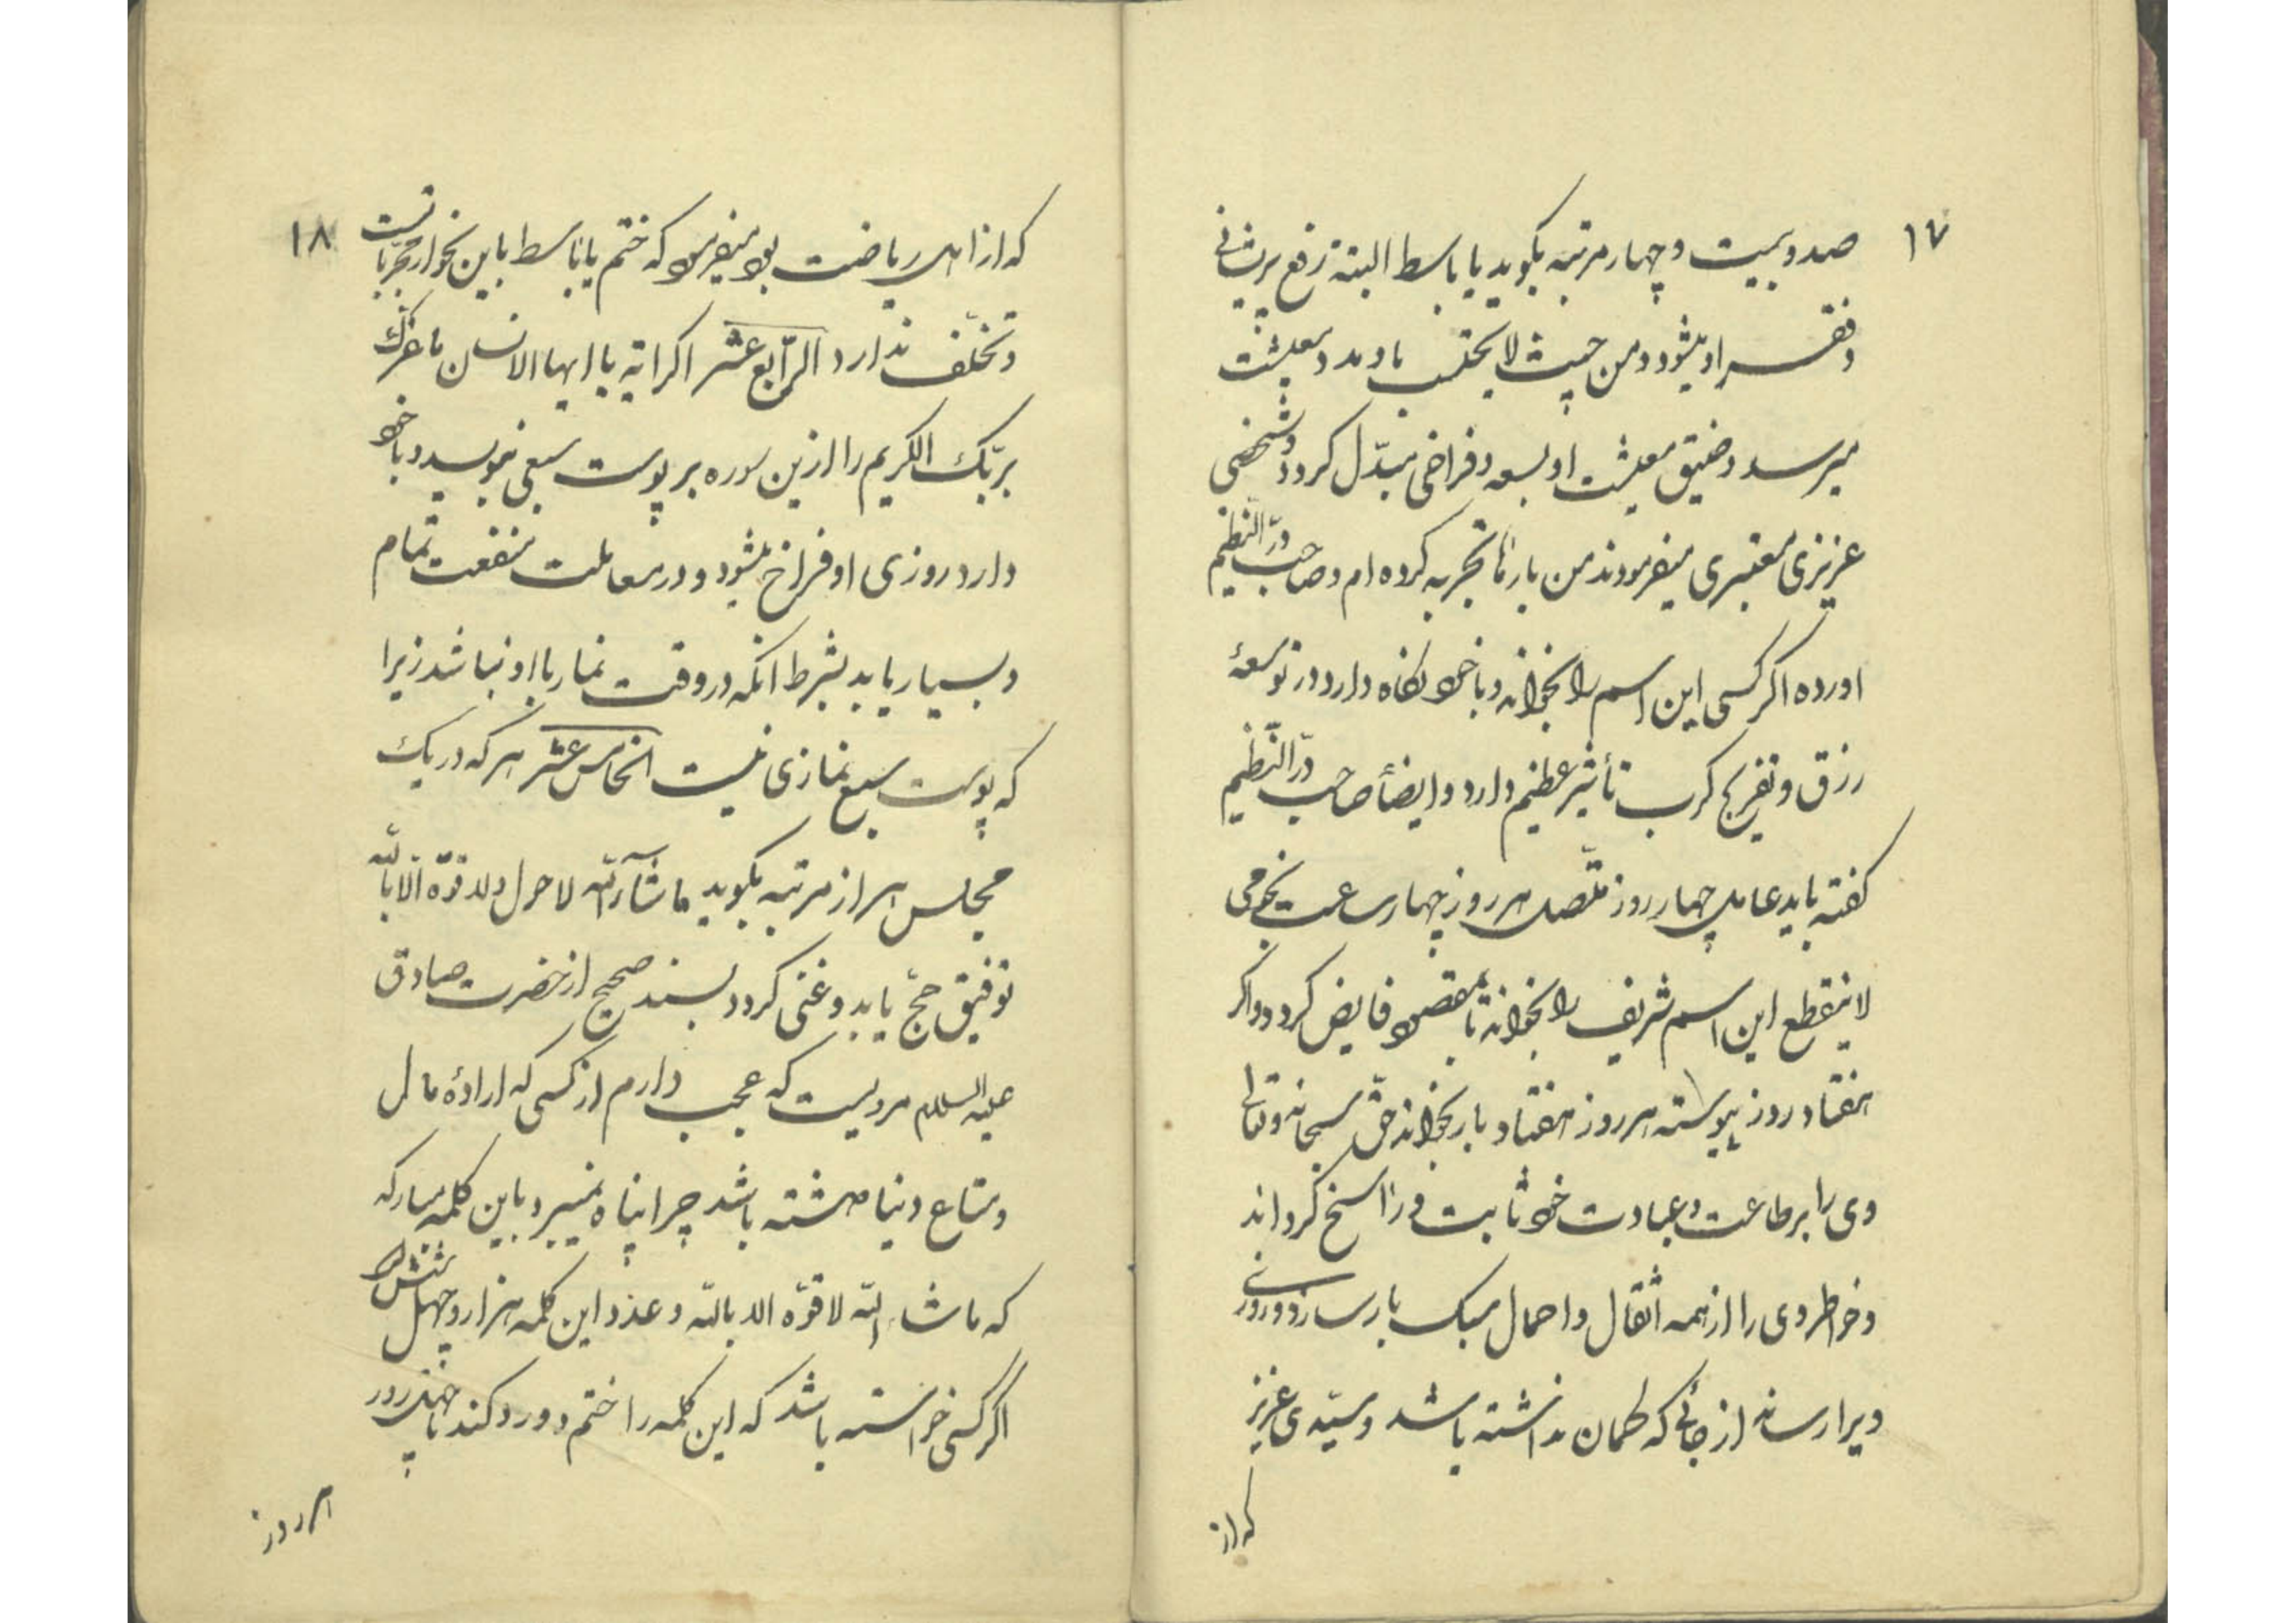 ۱۷
صد و بیست و چهار مرتبه بکوید یا باسط البته رفع پریشانی
و فقر او میشود و من حیث لا یحتسب باو مدد معیشت
میرسد و ضیق معیشت او بسعه و فراخی مبدّل کردد و شخصی
عزیزی معتبری میفرمودند من بارها تجربه کرده ام و صاحب درّ النّظیم
اورده اکر کسی این اسم را بخواند و با خود نکاه دارد در توسعهٔ
رزق و تفریج کرب تأثیر عظیم دارد و ایضاً صاحب درّ النّظیم
کفته باید عامل چهار روز متّصل هر روز چهار ساعت نجومی
لاینقطع این اسم شریف را بخواند تا بمقصود فایض کردد و اکر
هفتاد روز پیوسته هر روز هفتاد بار بخواند حقّ سبحانه و تعالی
وی را بر طاعت و عبادت خود ثابت و راسخ کرداند
و خواطر وی را از همه اثقال و احمال سبک بار سازد و روزی
ویرا رساند از جائی که کمان نداشته باشد و سیّدی عزیز
که از
۱۸
که از اهل ریاضت بود میفرمود که ختم یا باسط باین نحو از مجرّباتست
و تخلّف ندارد الرّابع عشر اکر ایه یا ایها الانسان ما غرّک
بربّک الکریم را ازین سوره بر پوست سبعی بنویسد و با خود
دارد روزی او فراخ میشود و در معاملت منفعت تمام
و بسیار یابد بشرط انکه در وقت نماز با او نباشد زیرا
که پوست سبع نمازی نیست الخامس عشر هر که در یک
مجلس هزار مرتبه بکوید ما شآء اللّه لا حول و لا قوّة الّا باللّه
توفیق حجّ یابد و غنی کردد بسند صحیح از حضرت صادق
علیه السلام مرویست که عجب دارم از کسی که ارادهٔ مال
و متاع دنیا داشته باشد چرا پناه نمیبرد باین کلمه مبارکه
که ما شاء اللّه لا قوّة الا باللّه و عدد این کلمه هزار و چهل
اکر کسی خواسته باشد که این کلمه را ختم و ورد کند تا چند روز
هر روز